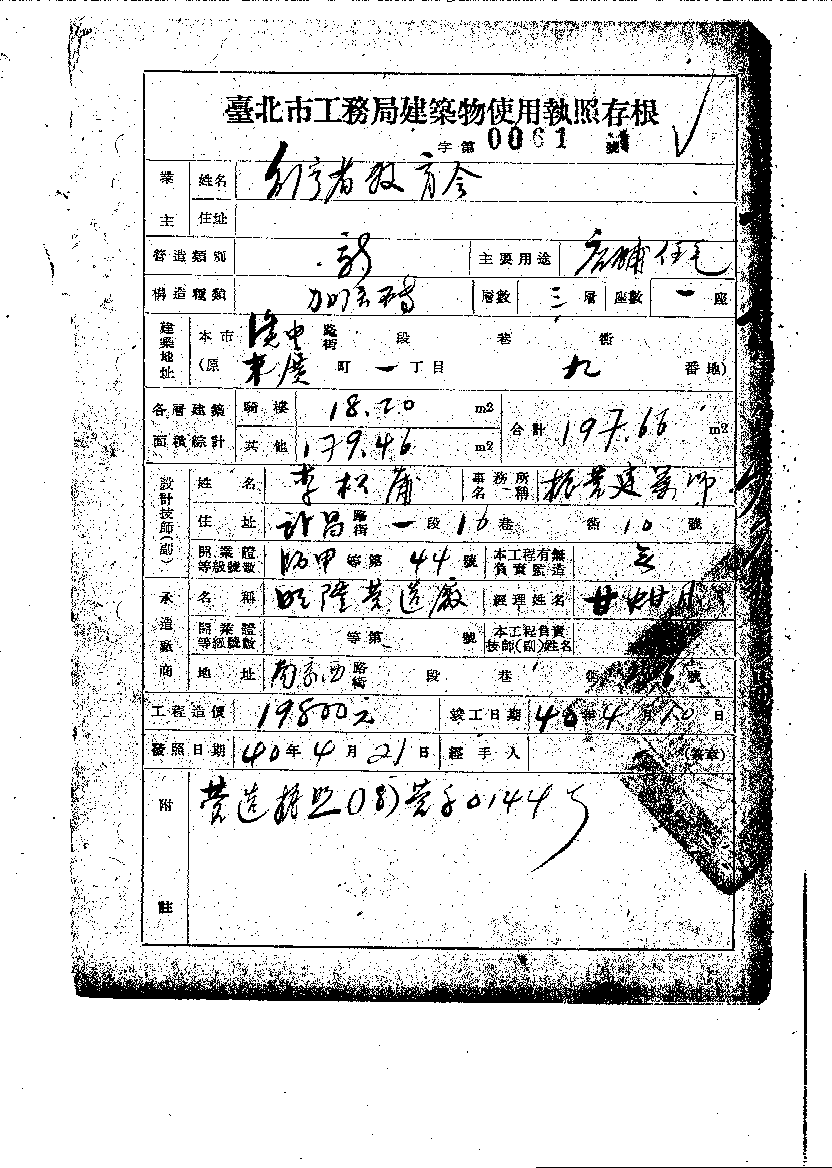 臺北市工務局建築物使用執照存根
字第0061號
業主 姓名
住址
營造類別 新 主要用途 店鋪住宅
構造種類 加強磚 層數 三層 座數 一座
建築地址 本市 漢中 路街 段 巷 衖
(原 末廣 町 一 丁目 九 番地)
各層建築面積綜計 騎樓 18.20 m2 合計 197.66 m2
其他 179.46 m2
設計技師(副) 姓名 李松 事務所名稱 建築師
住址 許昌 路街 一段 16巷 衖 10 號
開業證等級號數 甲等第 44 號 本工程有無負責監造 無
承造廠商 名稱 隆營造廠 經理姓名
開業證等級號數 等第 號 本工程負責技師(副)姓名
地址 南京西 路街 段 巷 號
工程造價 19800元 竣工日期 40年4月10日
發照日期 40年4月21日 經手人 (蓋章)
附註 營造執照(38)營字0144號